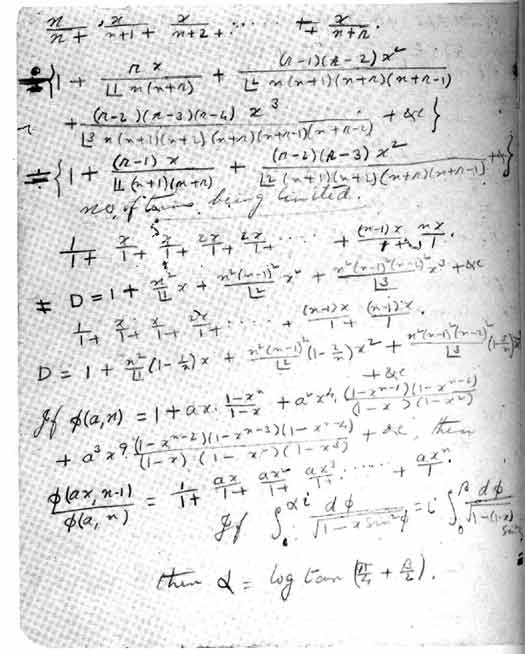 n/n + x/n+1 + x/n+2 + ..... + x/n+r
= {1 + rx/∟1 n(n+r) + (r-1)(r-2)x²/∟2 n(n+1)(n+r)(n+r-1)
+ (r-2)(r-3)(r-4)x³/∟3 n(n+1)(n+2)(n+r)(n+r-1)(n+r-2) + &c}
÷ {1 + (r-1)x/∟1 (n+1)(n+r) + (r-2)(r-3)x²/∟2 (n+1)(n+2)(n+r)(n+r-1) + &c}
no. of terms being limited.
1/1 + x/1 + x/1 + 2x/1 + 2x/1 + ..... + (n-1)x/1 + nx/1.
D = 1 + n²/∟1 x + n²(n-1)²/∟2 x² + n²(n-1)²(n-2)²/∟3 x³ + &c
1/1 + x/1 + x/1 + 2x/1 + ..... + (n-1)x/1 + (n-1)x/1.
D = 1 + n²/∟1 (1-1/n)x + n²(n-1)²/∟2 (1-2/n)x² + n²(n-1)²(n-2)²/∟3 (1-3/n)
+ &c
If φ(a,n) = 1 + ax. 1-xⁿ/1-x + a²x⁴. (1-xⁿ⁻¹)(1-xⁿ⁻²)/(1-x)(1-x²)
+ a³x⁹. (1-xⁿ⁻²)(1-xⁿ⁻³)(1-xⁿ⁻⁴)/(1-x)(1-x²)(1-x³) + &c, then
φ(ax, n-1)/φ(a, n) = 1/1 + ax/1 + ax²/1 + ax³/1 + ..... + axⁿ/1.
If ∫₀^αi dφ/√1-x sin²φ = i ∫₀^β dφ/√1-(1-x) sin
then α = log tan (π/4 + β/2).